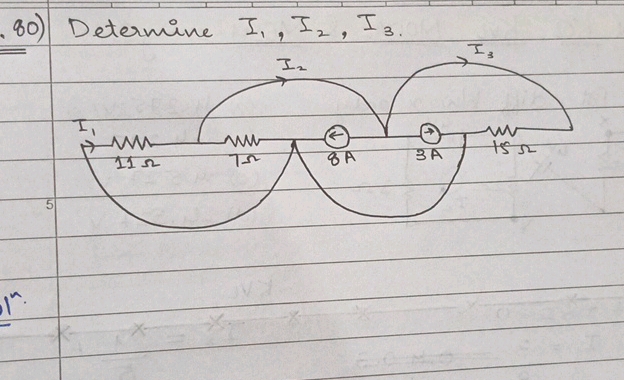 . 80) Determine I₁, I₂, I₃.
I₂ I₃
I₁
11 Ω 7 Ω 8 A 3 A 15 Ω
5
olⁿ.